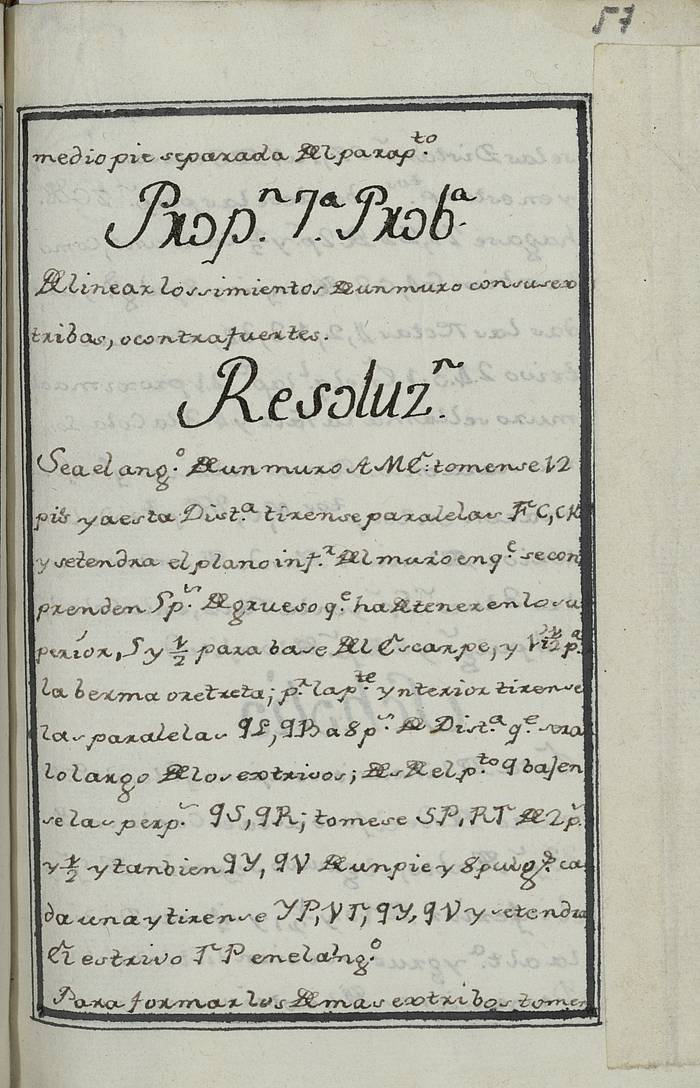 57
medio pie separada del parap.to
Prop.n 7.a Prob.a
Delinear los simientos de un muro con sus ex
tribas, o contrafuertes.
Resoluz.n
Sea el ang.o de un muro A M C: tomense 12
pies y a esta Dist.a tirense paralelas F C, C K
y se tendra el plano inf.r del muro en q.e se con
prenden 5 p.s de grueso q.e ha de tener en lo su
perior, 5 y 1/2 para base del Escarpe, y 1 1/2 p.a
la berma o retreta; p.r la p.te ynterior tirense
las paralelas 9L, 9B a 8 p.s de Dist.a q.e sera
lo largo de los extrivos; desde el p.to 9 bajen
se las perp.s 9S, 9R; tomese SP, RT de 2 p.s
y 1/2 y tanbien 9Y, 9V de un pie y 8 pulg.s ca
da una y tirense YP, VT, 9Y, 9V y se tendra
El estrivo T P en el ang.o
Para formar los demas extribos tomen